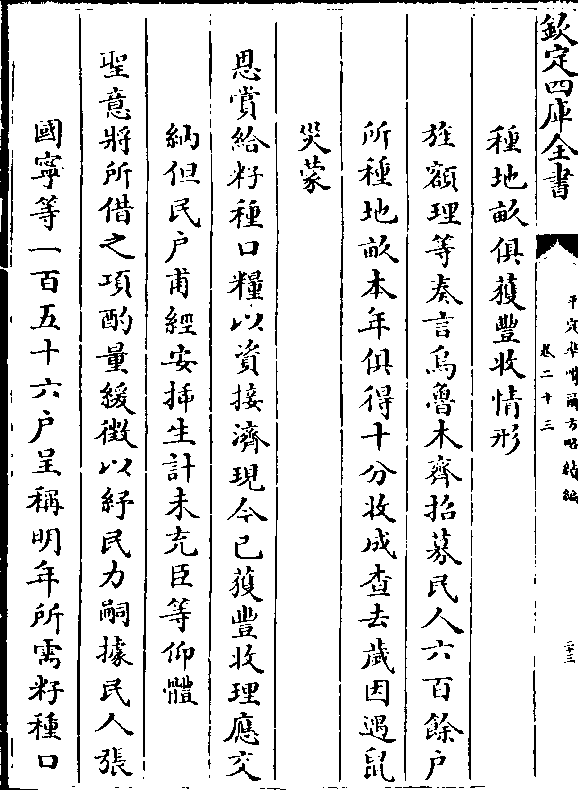 欽定四庫全書
平定準噶爾方略續編
卷二十三
二十三
種地畝俱獲豐收情形
旌額理等奏言烏魯木齊招募民人六百餘户
所種地畝本年俱得十分收成查去歲因遇鼠
災蒙
恩賞給籽種口糧以資接濟現今已獲豐收理應交
納但民户甫經安揷生計未充臣等仰體
聖意將所借之項酌量緩徵以紓民力嗣據民人張
國寧等一百五十六户呈稱明年所需籽種口